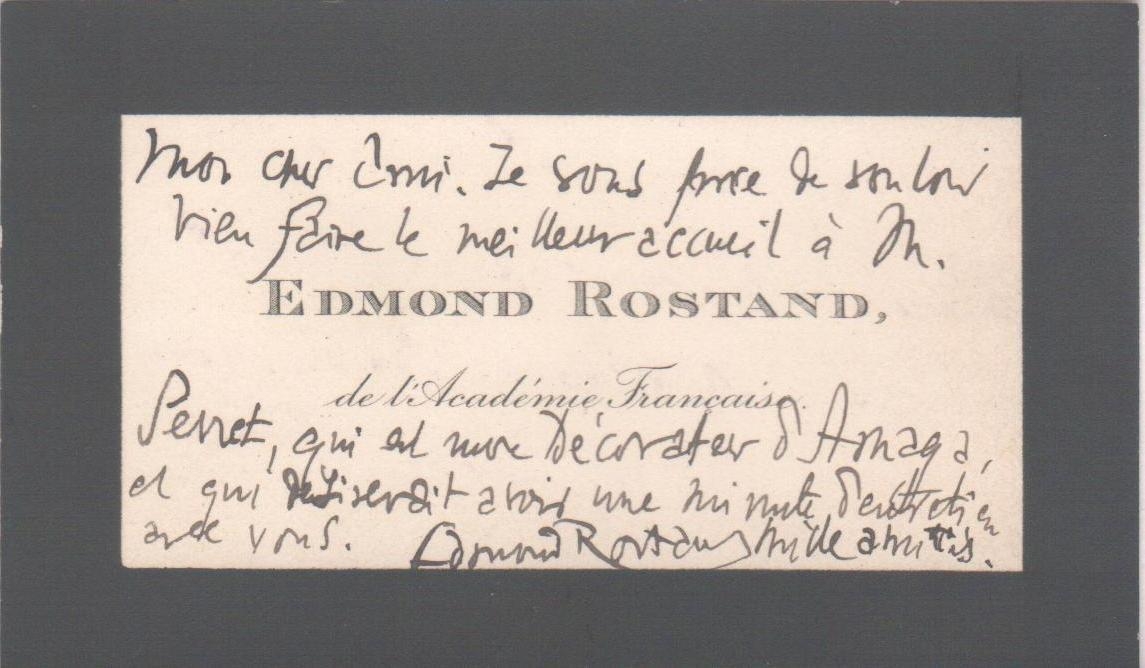 Mon cher ami. Je vous prie de vouloir
bien faire le meilleur accueil à M.
EDMOND ROSTAND,
de l'Académie Française.
Perret, qui est mon Décorateur d'Arnaga,
et qui désirerait avoir une minute d'entretien
avec vous. Edmond Rostand Mille amitiés.